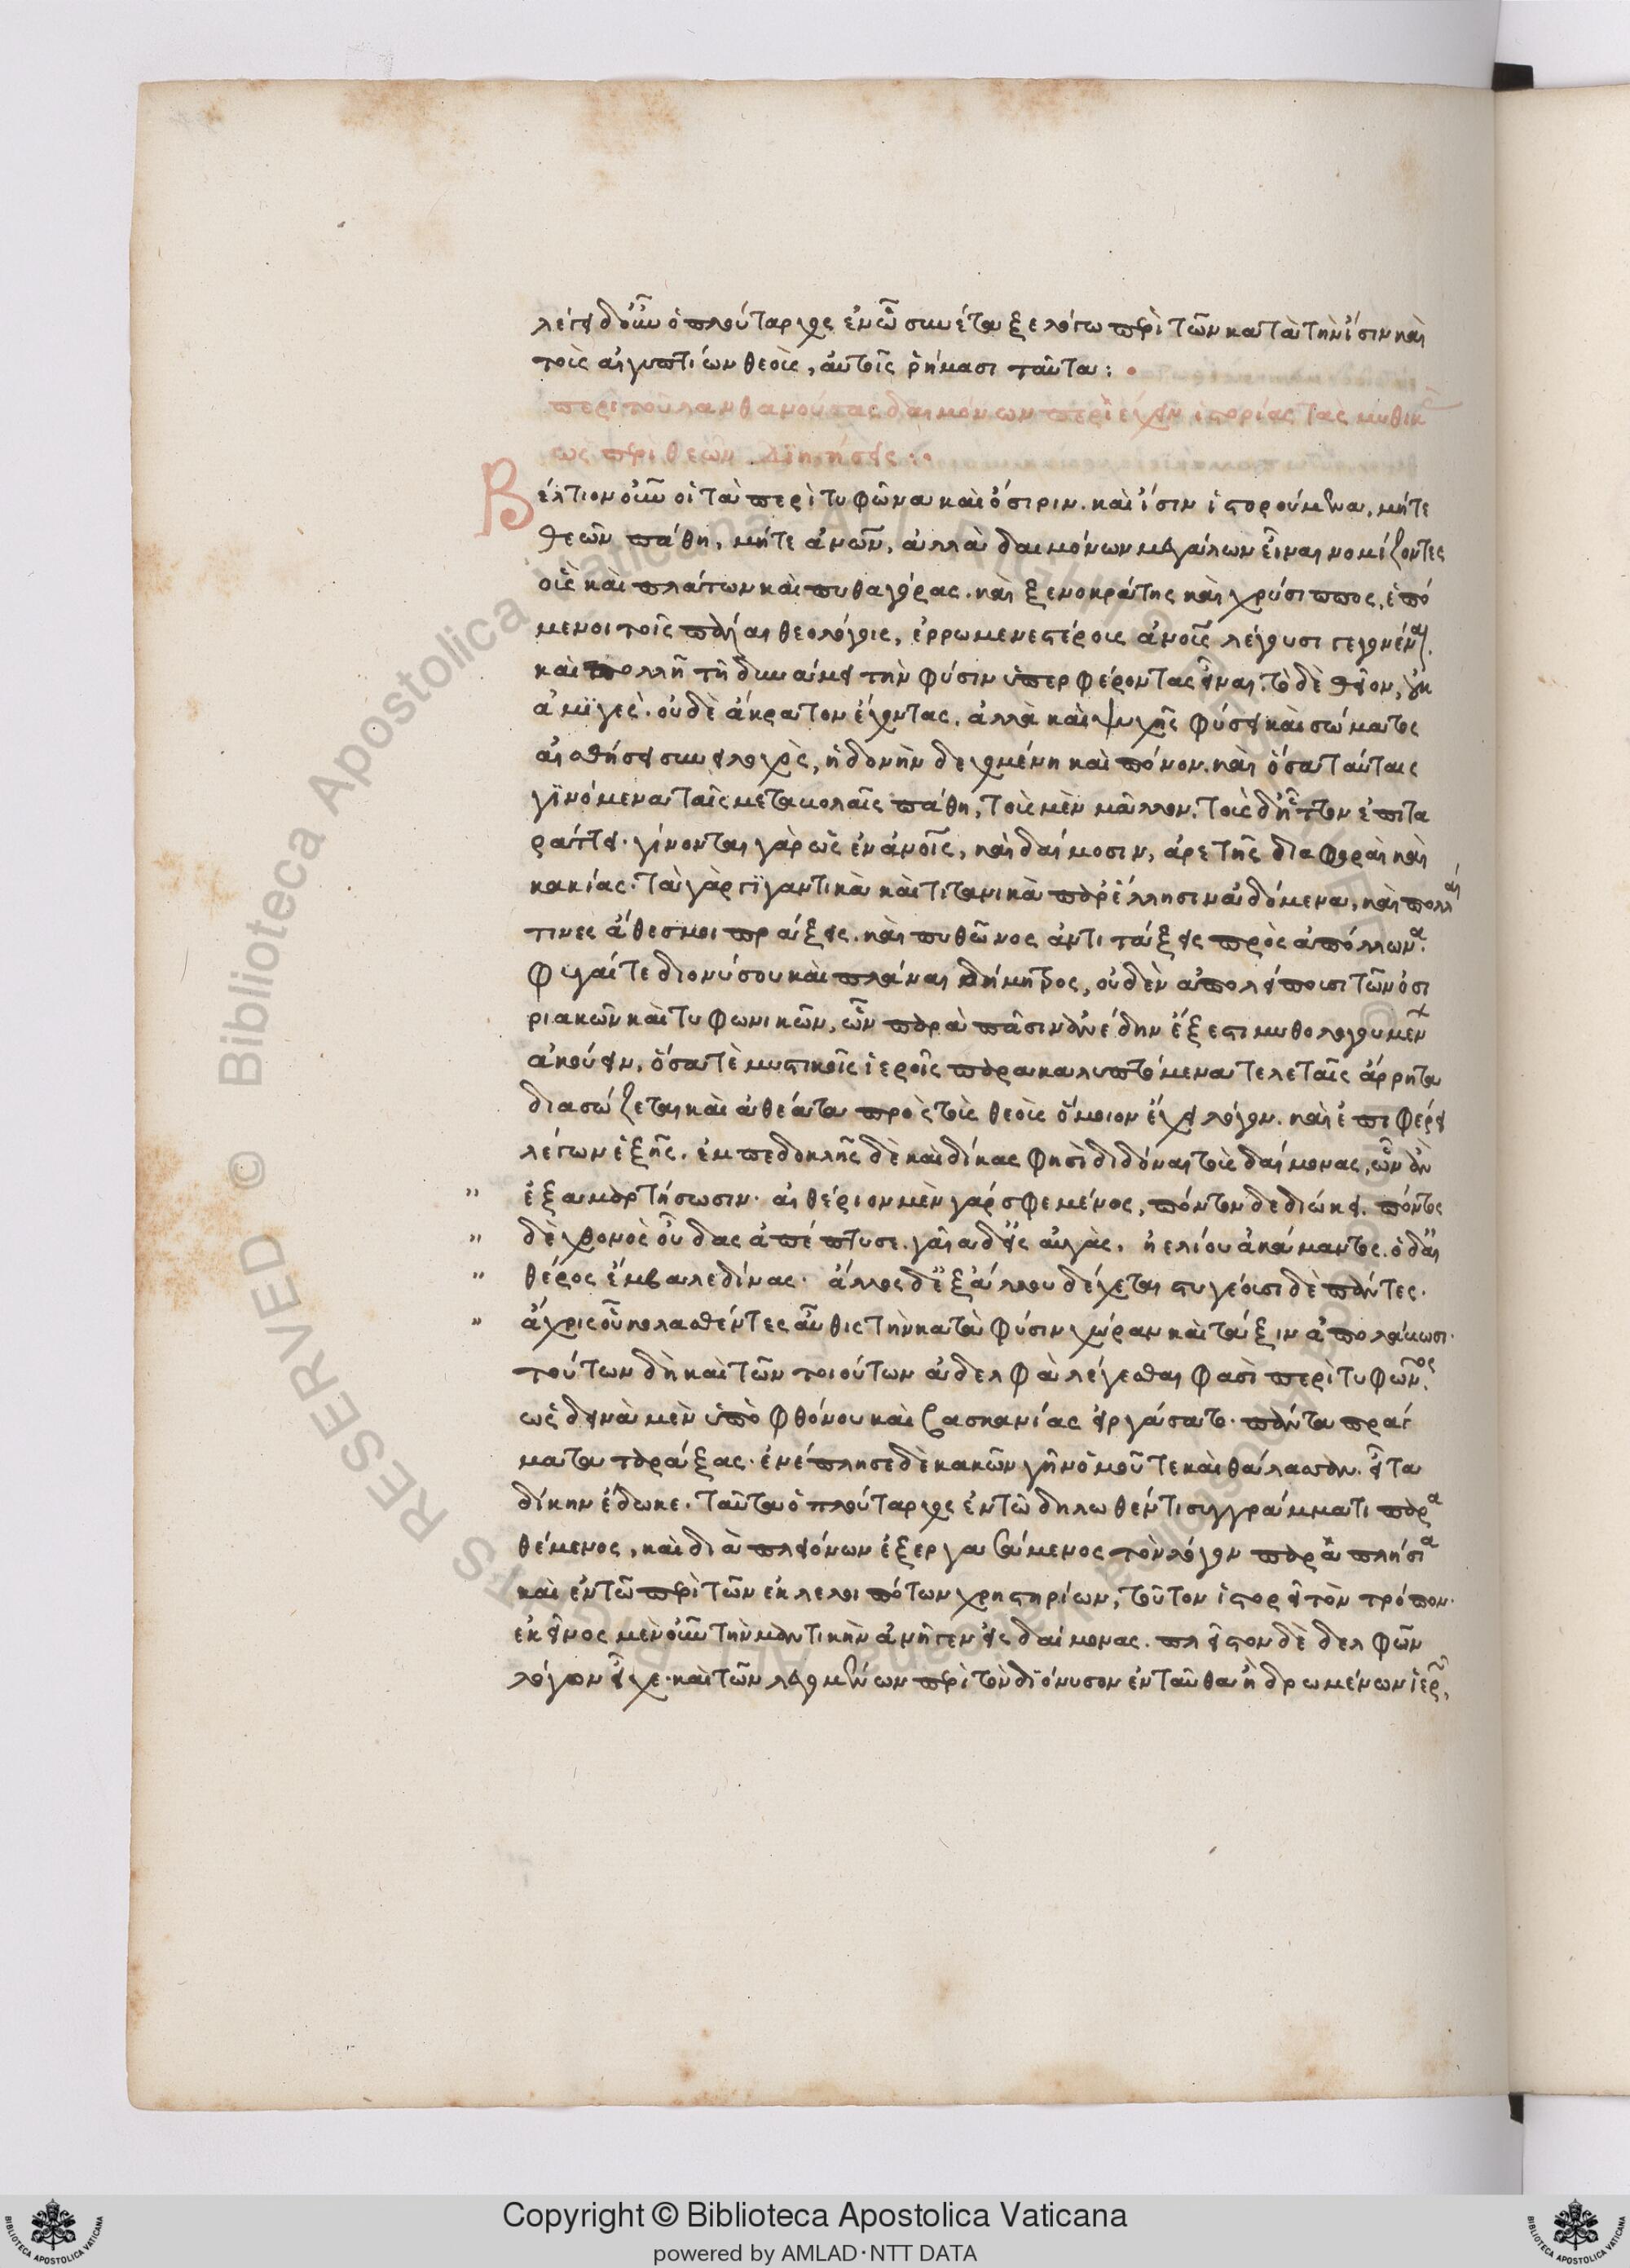 λέγει δ' οὖν ὁ πλούταρχος ἐν ᾧ συνέταξε λόγω περὶ τῶν κατὰ τὴν ἴσιν καὶ
τοὺς αἰγυπτίων θεοὺς, αὐτοῖς ῥήμασι ταῦτα:
περὶ τοῦ λανθανούσας δαιμόνων περιέχειν ἱστορίας τὰς μυθικ
ὡς περὶ θεῶν διηγήσεις:
Βέλτιον οὖν οἱ τὰ περὶ τυφῶνα καὶ ὄσιριν. καὶ ἴσιν ἱστορούμενα, μήτε
θεῶν πάθη, μήτε ἀνων, ἀλλὰ δαιμόνων μεγάλων εἶναι νομίζοντες
οὓς καὶ πλάτων καὶ πυθαγόρας. καὶ ξενοκράτης καὶ χρύσιππος, ἑπό
μενοι τοῖς πάλαι θεολόγοις, ἐρρωμενεστέρους ἀνοις λέγουσι γεγονέναι.
καὶ πολλῆ τῆ δυνάμει τὴν φύσιν ὑπερφέροντας εἶναι. τὸ δὲ θεῖον, οὐκ
ἀμϊγὲς. οὐδὲ ἄκρατον ἔχοντας. ἀλλὰ καὶ ψυχῆς φύσει καὶ σώματος
αἰσθήσει συνειληχὸς, ἡδονὴν δεχομένη καὶ πόνον. καὶ ὅσα ταύταις
γϊνόμενα ταῖς μεταβολαῖς πάθη, τοὺς μὲν μᾶλλον. τοὺς δ' ἧττον ἐπιτα
ράττει. γίνονται γὰρ ὡς ἐν ἀνοις, καὶ δαίμοσιν, ἀρετῆς διαφοραὶ καὶ
κακίας. τὰ γὰρ γϊγαντικὰ καὶ τιτανικὰ παρ' ἕλλησιν ἀδόμενα, καὶ πολλαί
τινες ἄθεσμοι πράξεις. καὶ πυθῶνος ἀντιτάξεις πρὸς ἀπόλλωνα.
φυγαί τε διονύσου καὶ πλάναι δήμητρος, οὐδὲν ἀπολείπουσι τῶν ὀσι
ριακῶν καὶ τυφωνικῶν, ὧν παρὰ πᾶσιν ἀνέδην ἔξεστι μυθολογουμένων
ἀκούειν, ὅσα τὲ μυστικοῖς ἱεροῖς παρακαλυπτόμενα τελεταῖς ἄρρητα
διασώζεται καὶ ἀθέατα πρὸς τοὺς θεοὺς ὅμοιον ἔχει λόγον. καὶ ἐπιφέρει
λέγων ἑξῆς. ἐμπεδοκλῆς δὲ καὶ δίκας φησὶ διδόναι τοὺς δαίμονας, ὧν ἂν
" ἐξαμαρτήσωσιν. αἰθέριον μὲν γάρ σφε μένος, πόντον δὲ διώκει. πόντος
" δὲ χθονὸς οὖδας ἀπέπτυσε. γαῖα δ' εἰς αὐγὰς. ἠελίου ἀκάμαντος. ὁ δ' αἰ
" θέρος ἔμβαλε δίνας. ἄλλος δ' ἐξ ἄλλου δέχεται στυγέουσι δὲ πάντες.
" ἄχρις οὗ κολασθέντες αὖθις τὴν κατὰ φύσιν χώραν καὶ τάξιν ἀπολάβωσι.
τούτων δὴ καὶ τῶν τοιούτων ἀδελφὰ λέγεσθαι φασὶ περὶ τυφῶνος.
ὡς δεινὰ μὲν ὑπὸ φθόνου καὶ βασκανίας εἰργάσατο. πάντα πράγ
ματα ταράξας. ἐνέπλησε δὲ κακῶν γῆν ὁμοῦ τε καὶ θάλασσαν. εἶτα
δίκην ἔδωκε. ταῦτα ὁ πλούταρχος ἐν τῶ δηλωθέντι συγγράμματι παρα
θέμενος, καὶ διὰ πλειόνων ἐξεργασάμενος τὸν λόγον παραπλήσια
καὶ ἐν τῶ περὶ τῶν ἐκλελοιπότων χρηστηρίων, τοῦτον ἱστορεῖ τὸν τρόπον.
ἐκεῖνος μὲν οὖν τὴν μαντικὴν ἀνῆγεν εἰς δαίμονας. πλεῖστον δὲ δελφῶν
λόγον εἶχε. καὶ τῶν λεγομένων περὶ τὸν διόνυσον ἐνταῦθα ἢ δρωμένων ἱερῶν,